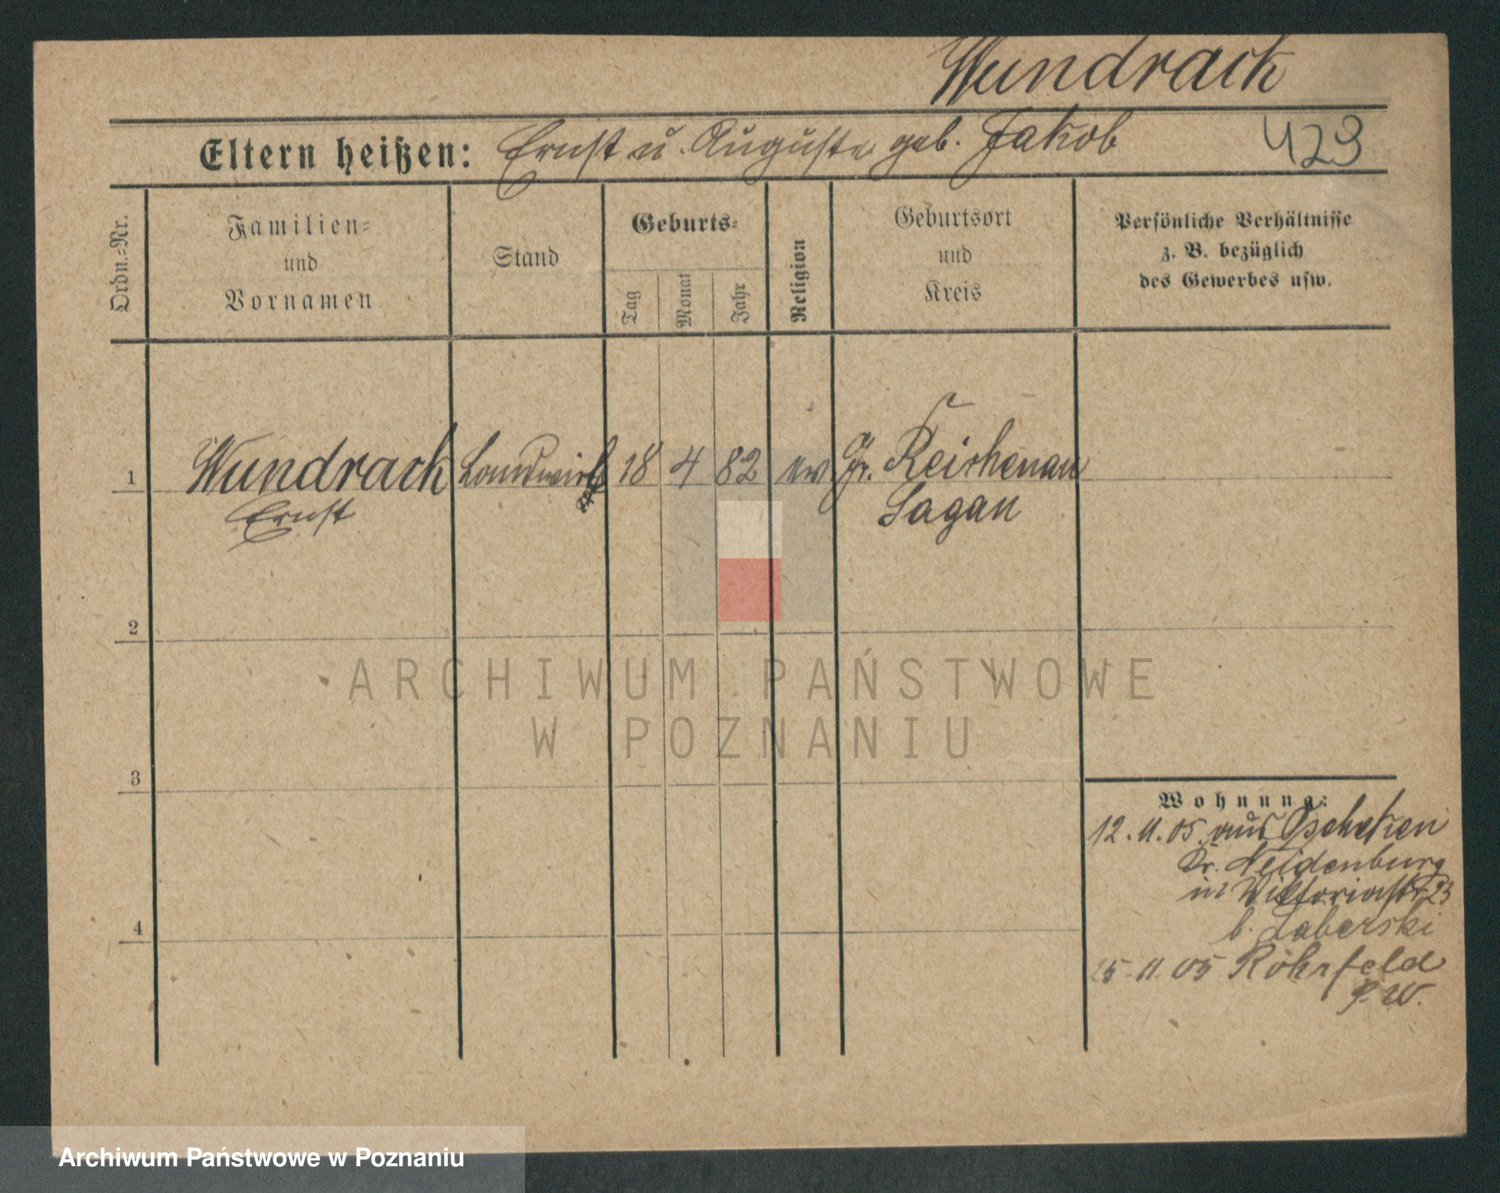 Wundrack
Eltern heißen: Ernst u. Auguste geb. Jakob 423
Ordn.=Nr.
Familien=
und
Vornamen
Stand
Geburts=
Tag
Monat
Jahr
Religion
Geburtsort
und
Kreis
Persönliche Verhältnisse
z. B. bezüglich
des Gewerbes usw.
1 Wundrack Landwirt 18 4 82 ev Gr. Reichenau
Ernst Sagan
2
3
4
Wohnung:
12.11.05 aus
Kr. Neidenburg
in Viktoriastr 23
b. Laberski
25.11.05 Rohrfeld
P. W.
ARCHIWUM PAŃSTWOWE
W POZNANIU
Archiwum Państwowe w Poznaniu